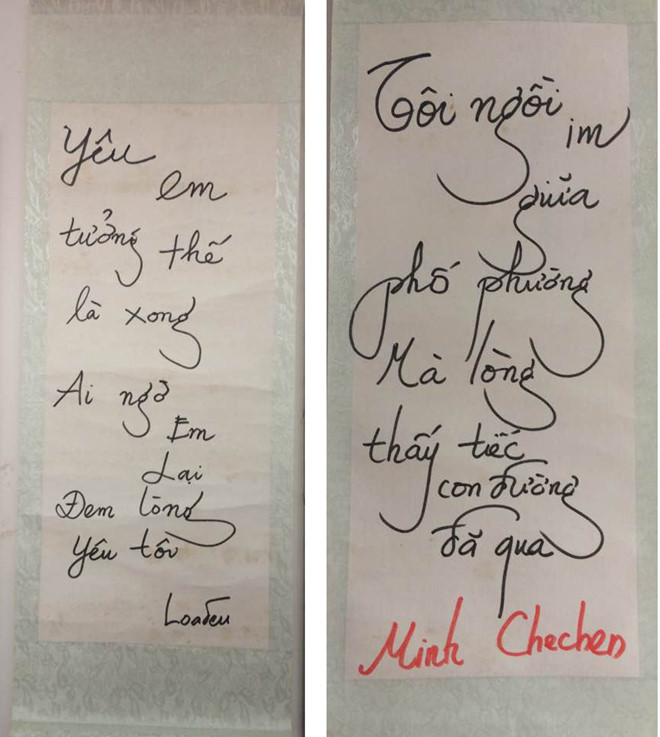 Yêu
em
tưởng thế
là xong
Ai ngờ
Em
Lại
Đem lòng
Yêu tôi
Loaden
Tôi ngồi
im
giữa
phố phường
Mà lòng
thấy tiếc
con đường
đã qua
Minh Chechen